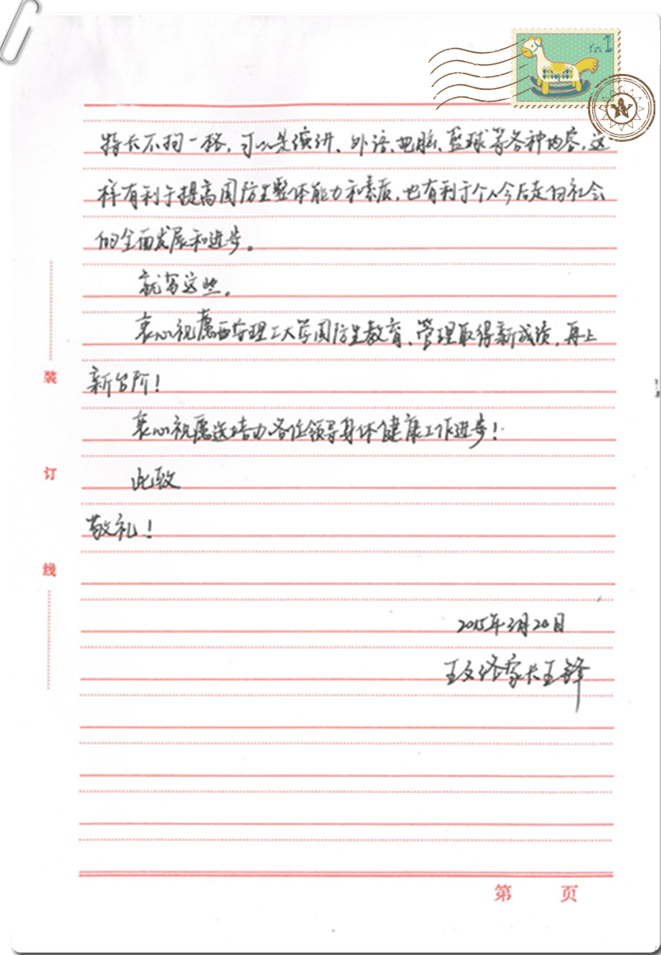 特长不拘一格，可以是演讲、外语、电脑、篮球等各种内容，这
样有利于提高国防生整体能力和素质，也有利于个人今后走向社会
的全面发展和进步。
就写这些。
衷心祝愿西安理工大学国防生教育、管理取得新成绩，再上
新台阶！
衷心祝愿选培办各位领导身体健康工作进步！
此致
敬礼！
2015年3月20日
家长王锋
装
订
线
第 页